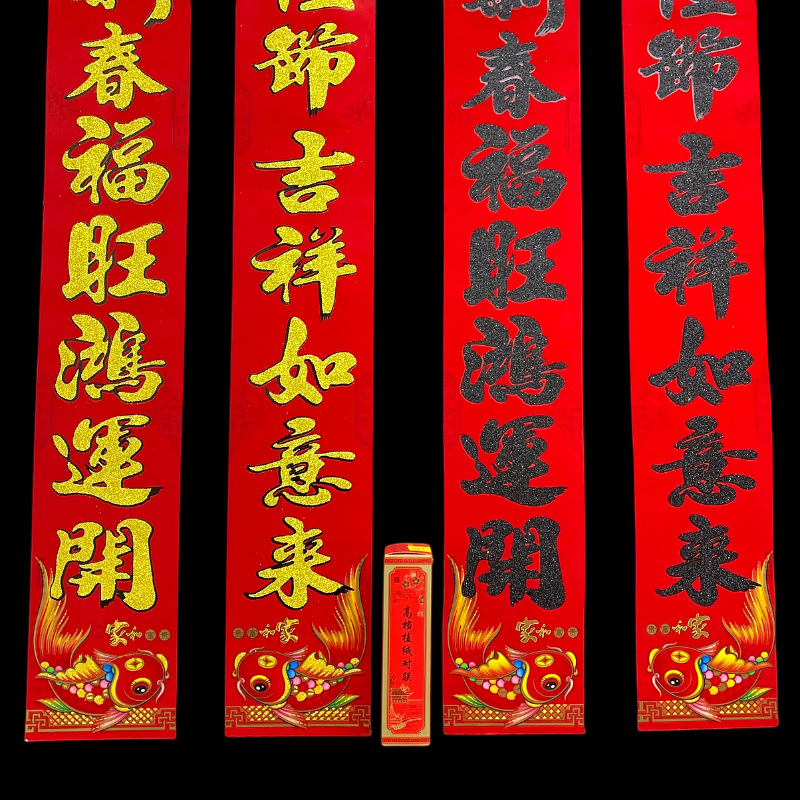 新春福旺鴻運開
家和
佳節吉祥如意来
家和
高档植绒对联
新春福旺鴻運開
家和
佳節吉祥如意来
家和